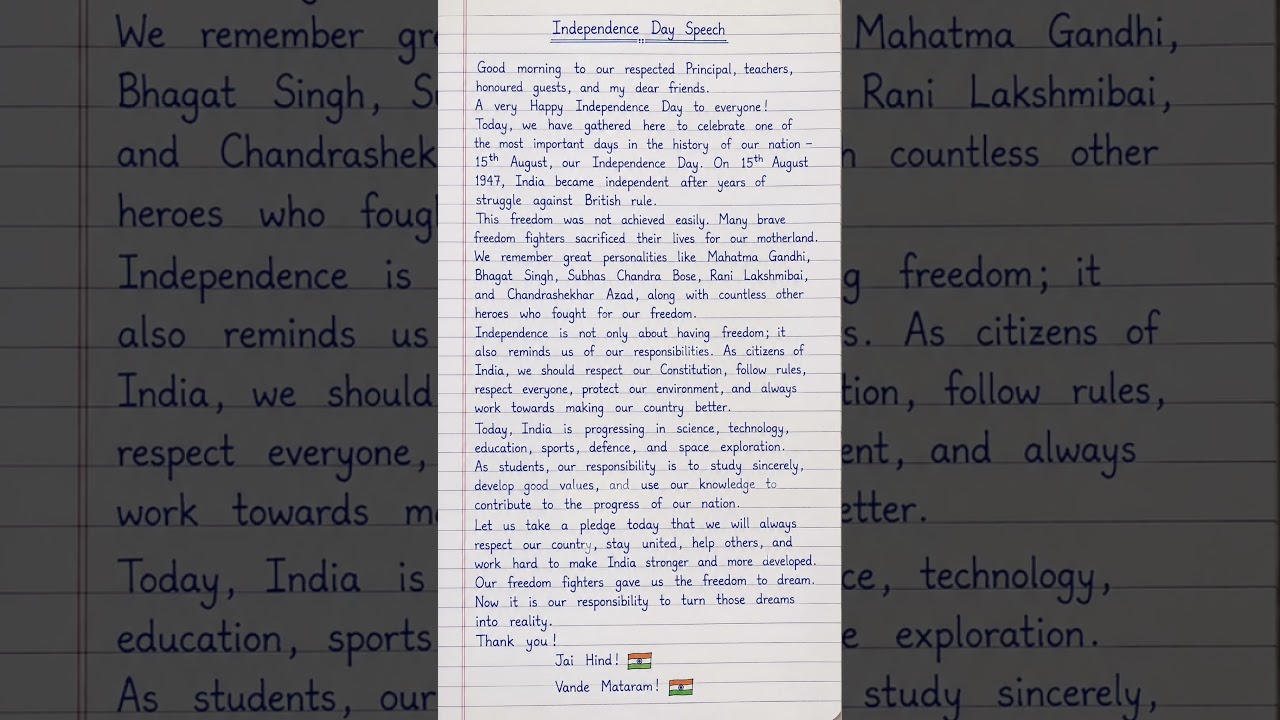 Independence Day Speech
Good morning to our respected Principal, teachers,
honoured guests, and my dear friends.
A very Happy Independence Day to everyone!
Today, we have gathered here to celebrate one of
the most important days in the history of our nation –
15th August, our Independence Day. On 15th August
1947, India became independent after years of
struggle against British rule.
This freedom was not achieved easily. Many brave
freedom fighters sacrificed their lives for our motherland.
We remember great personalities like Mahatma Gandhi,
Bhagat Singh, Subhas Chandra Bose, Rani Lakshmibai,
and Chandrashekhar Azad, along with countless other
heroes who fought for our freedom.
Independence is not only about having freedom; it
also reminds us of our responsibilities. As citizens of
India, we should respect our Constitution, follow rules,
respect everyone, protect our environment, and always
work towards making our country better.
Today, India is progressing in science, technology,
education, sports, defence, and space exploration.
As students, our responsibility is to study sincerely,
develop good values, and use our knowledge to
contribute to the progress of our nation.
Let us take a pledge today that we will always
respect our country, stay united, help others, and
work hard to make India stronger and more developed.
Our freedom fighters gave us the freedom to dream.
Now it is our responsibility to turn those dreams
into reality.
Thank you!
Jai Hind!
Vande Mataram!
We remember gr
Bhagat Singh, S
and Chandrashek
heroes who foug
Independence is
also reminds us
India, we should
respect everyone,
work towards m
Today, India is
education, sports
As students, our
Mahatma Gandhi,
Rani Lakshmibai,
n countless other
g freedom; it
s. As citizens of
tion, follow rules,
ent, and always
etter.
ce, technology,
e exploration.
study sincerely,